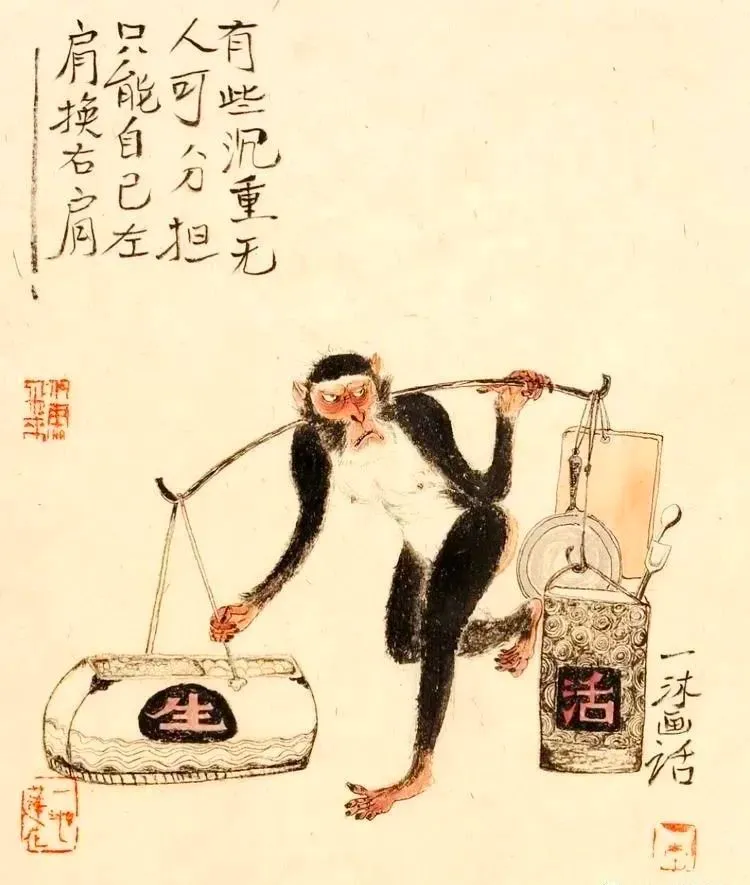 有些沉重无
人可分担
只能自己左
肩换右肩
生
活
一沐画话